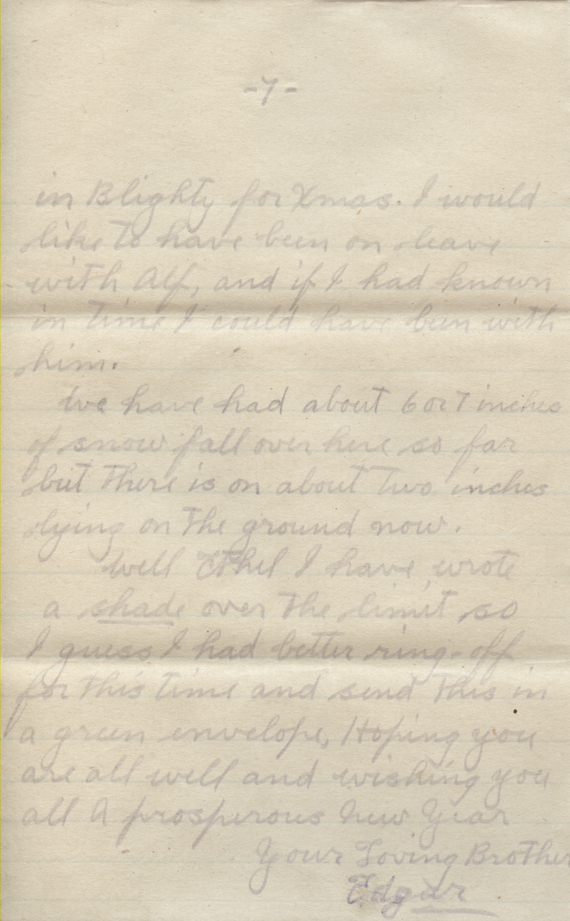 -7-
in Blighty for Xmas. I would
like to have been on leave
with Alf, and if I had known
in time I could have been with
him.
We have had about 6 or 7 inches
of snow fall over here so far
but there is on about two inches
lying on the ground now.
Well Ethel I have wrote
a shade over the limit so
I guess I had better ring-off
for this time and send this in
a green envelope, Hoping you
are all well and wishing you
all A prosperous New Year
Your Loving Brother
Edgar.